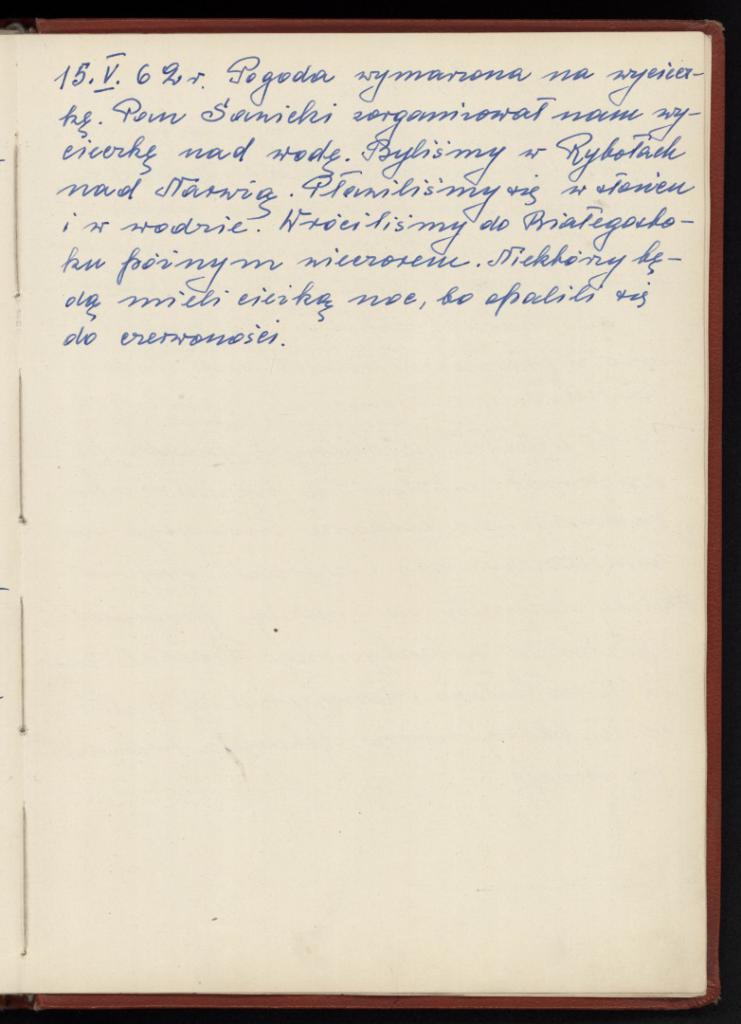 15. V. 62 r. Pogoda wymarzona na wyciecz-
kę. Pan Sanicki zorganizował nam wy-
cieczkę nad wodę. Byliśmy w Rybołach
nad Narwią. Pławiliśmy się w słońcu
i w wodzie. Wróciliśmy do Białegosto-
ku późnym wieczorem. Niektórzy bę-
dą mieli ciężką noc, bo opalili się
do czerwoności.